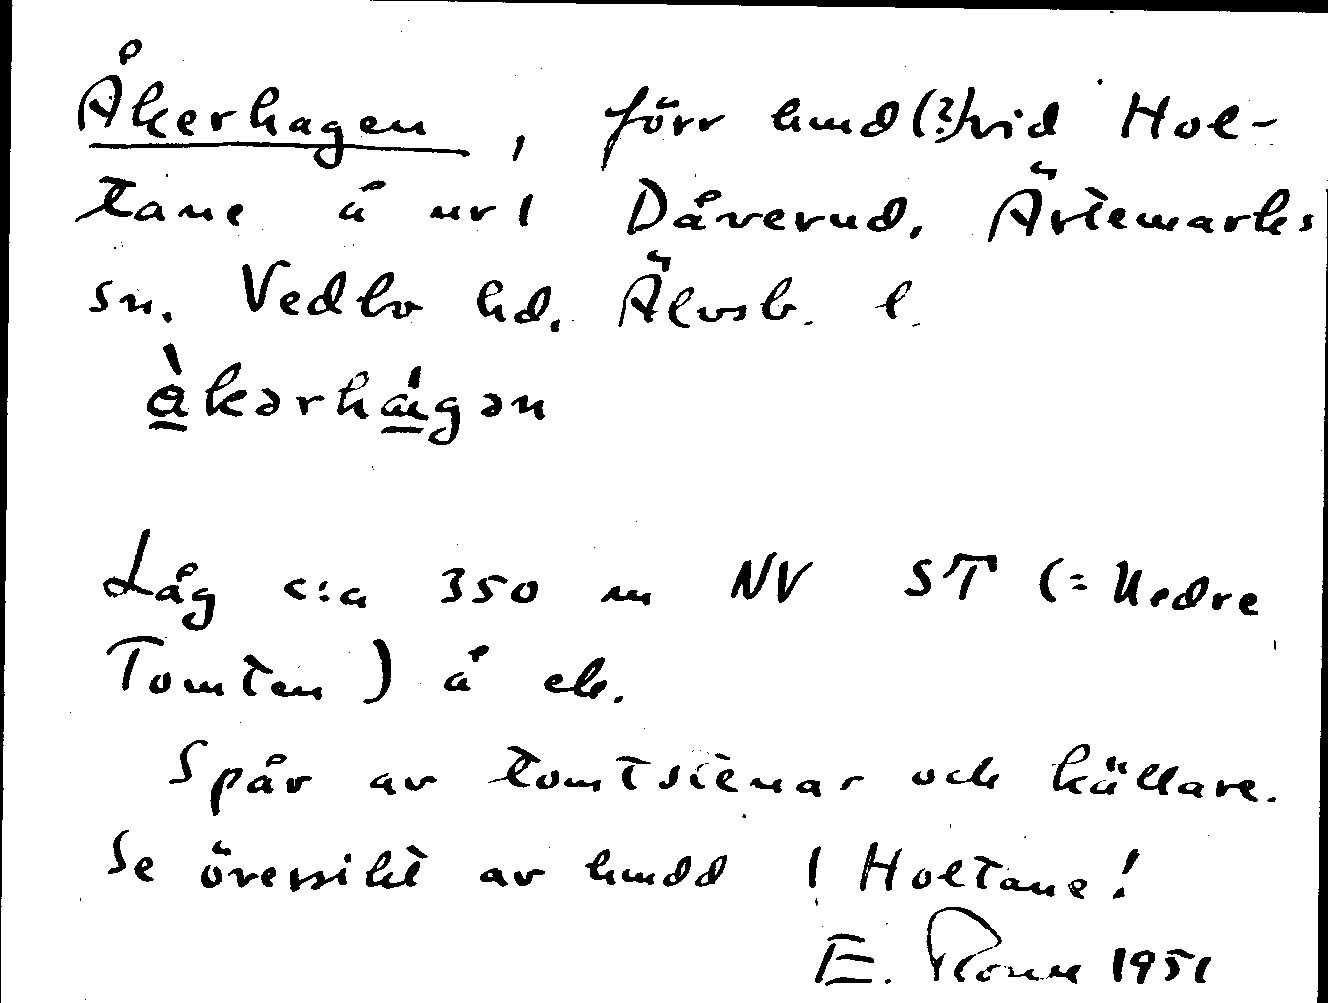 Åkerhagen, förr hmd(?) vid Hol-
tane å nr 1 Dåverud. Ärtemarks
sn. Vedbo hd. Älvsb. l.
åkərhágən
Låg c:a 350 m NV ST (= Nedre
Tomten) å ek.
Spår av tomtstenar och källare.
Se översikt av hmdd / Holtane!
E. 1951